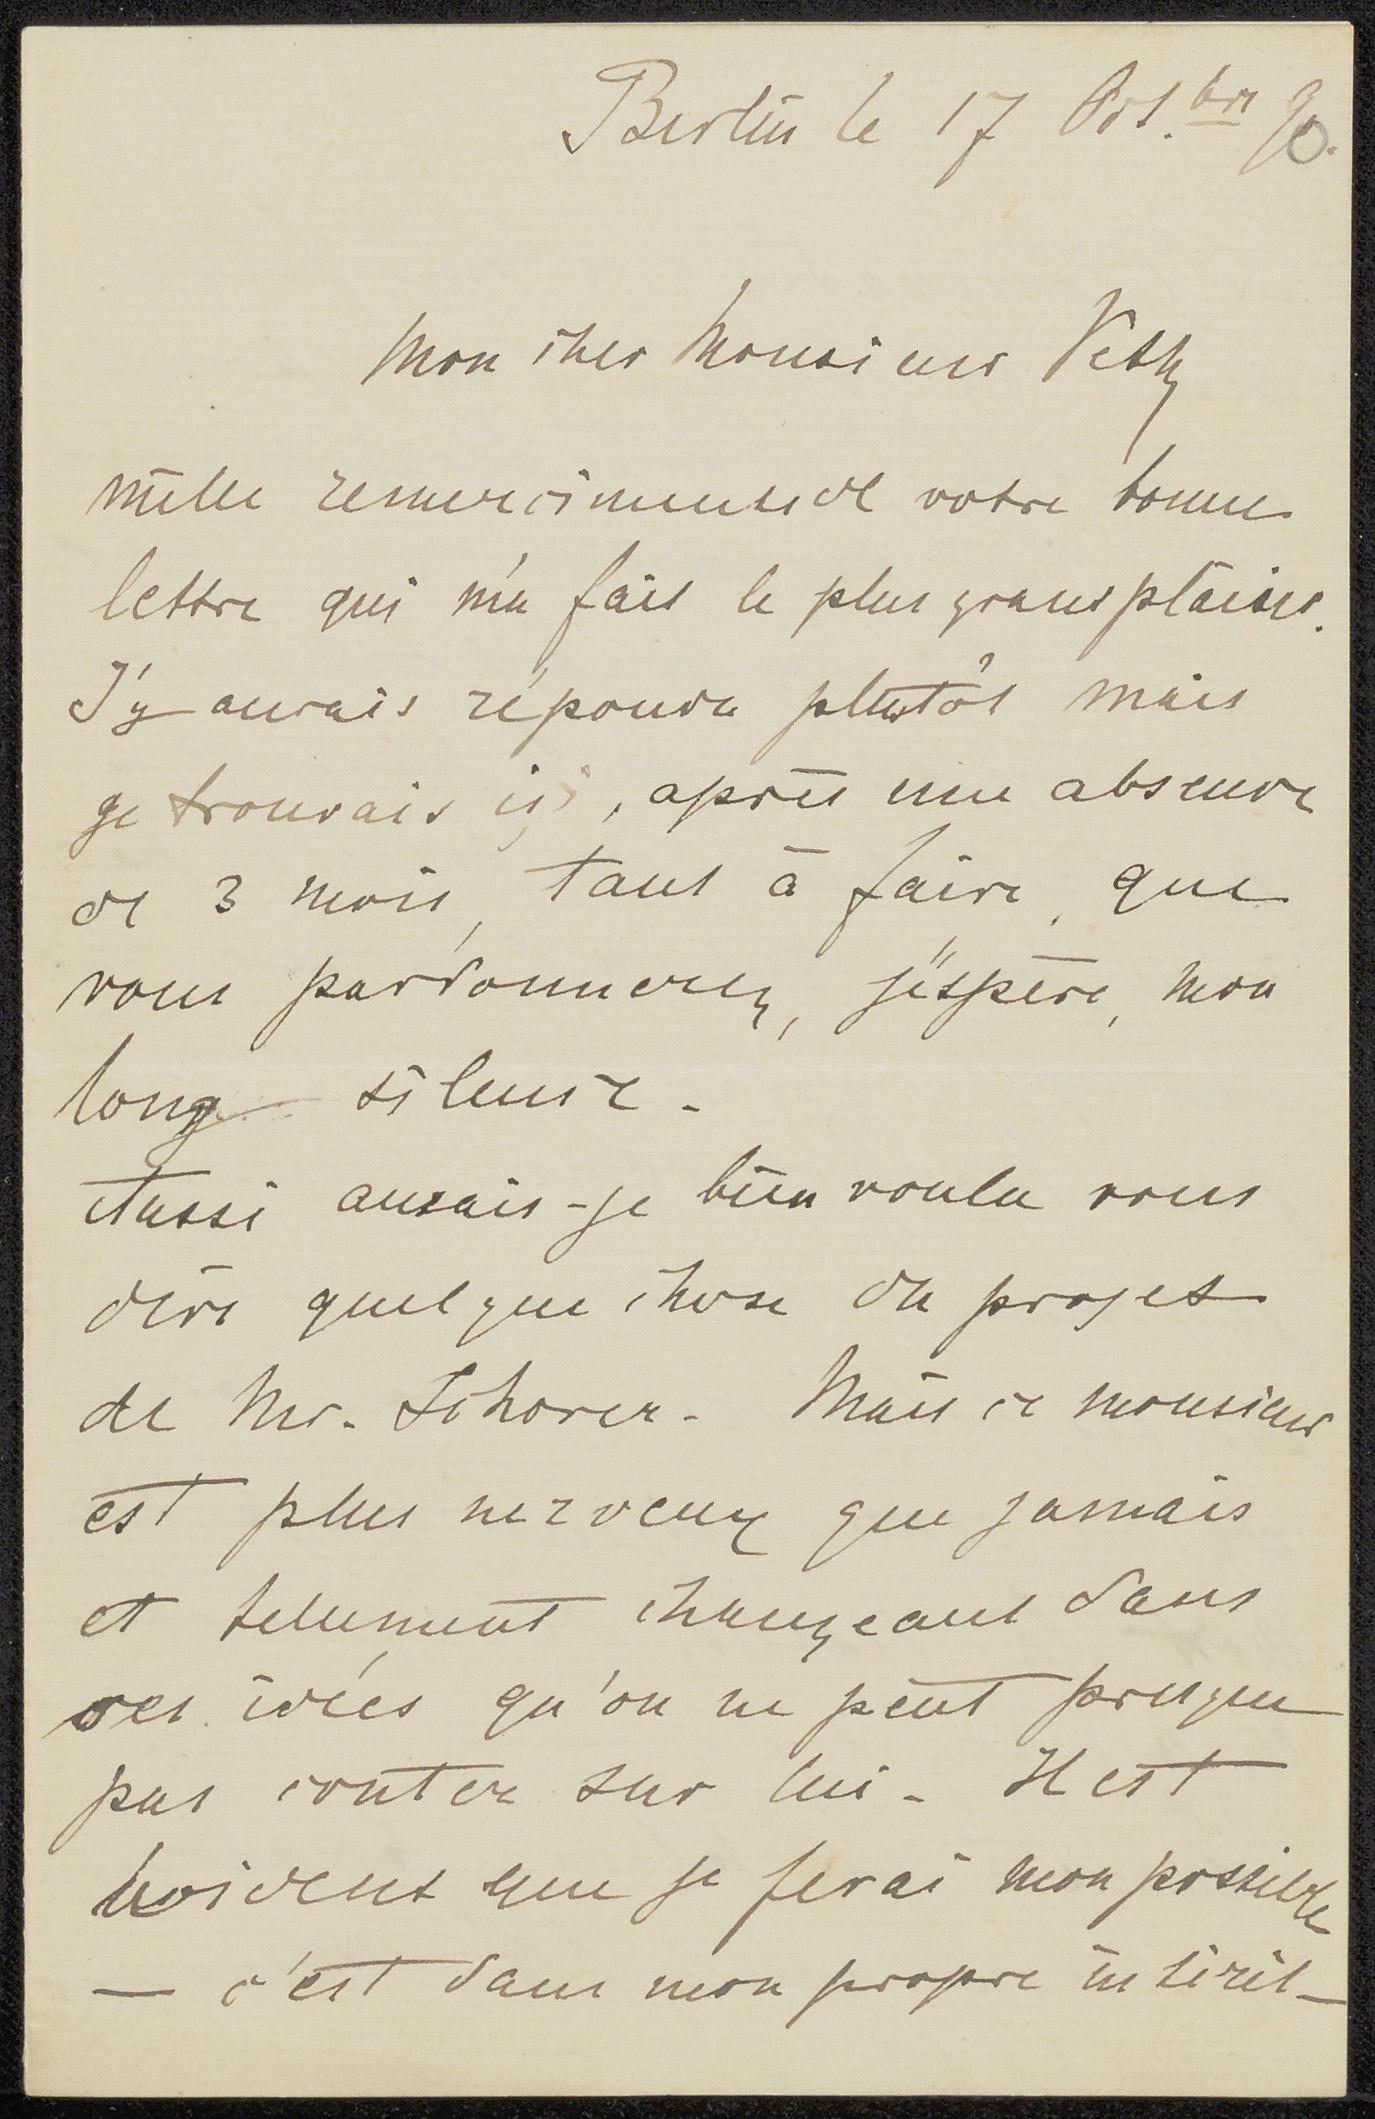 Berlin le 17 Oct.bre 90.
Mon cher Monsieur Veth
mille remerciments de votre bonne
lettre qui m'a fait le plus grand plaisir.
J'y aurais répondu plustôt mais
je trouvais ici, après une absence
de 3 mois, tant à faire, que
vous pardonnerez, j'espère, mon
long silence.
Aussi aurais-je bien voulu vous
dire quelque chose du projet
de Mr. Schorer. Mais ce monsieur
est plus nerveux que jamais
et tellement changeant dans
ses idées qu'on ne peut presque
pas conter sur lui. Il est
évident que je ferai mon possible
— c'est dans mon propre intérêt —